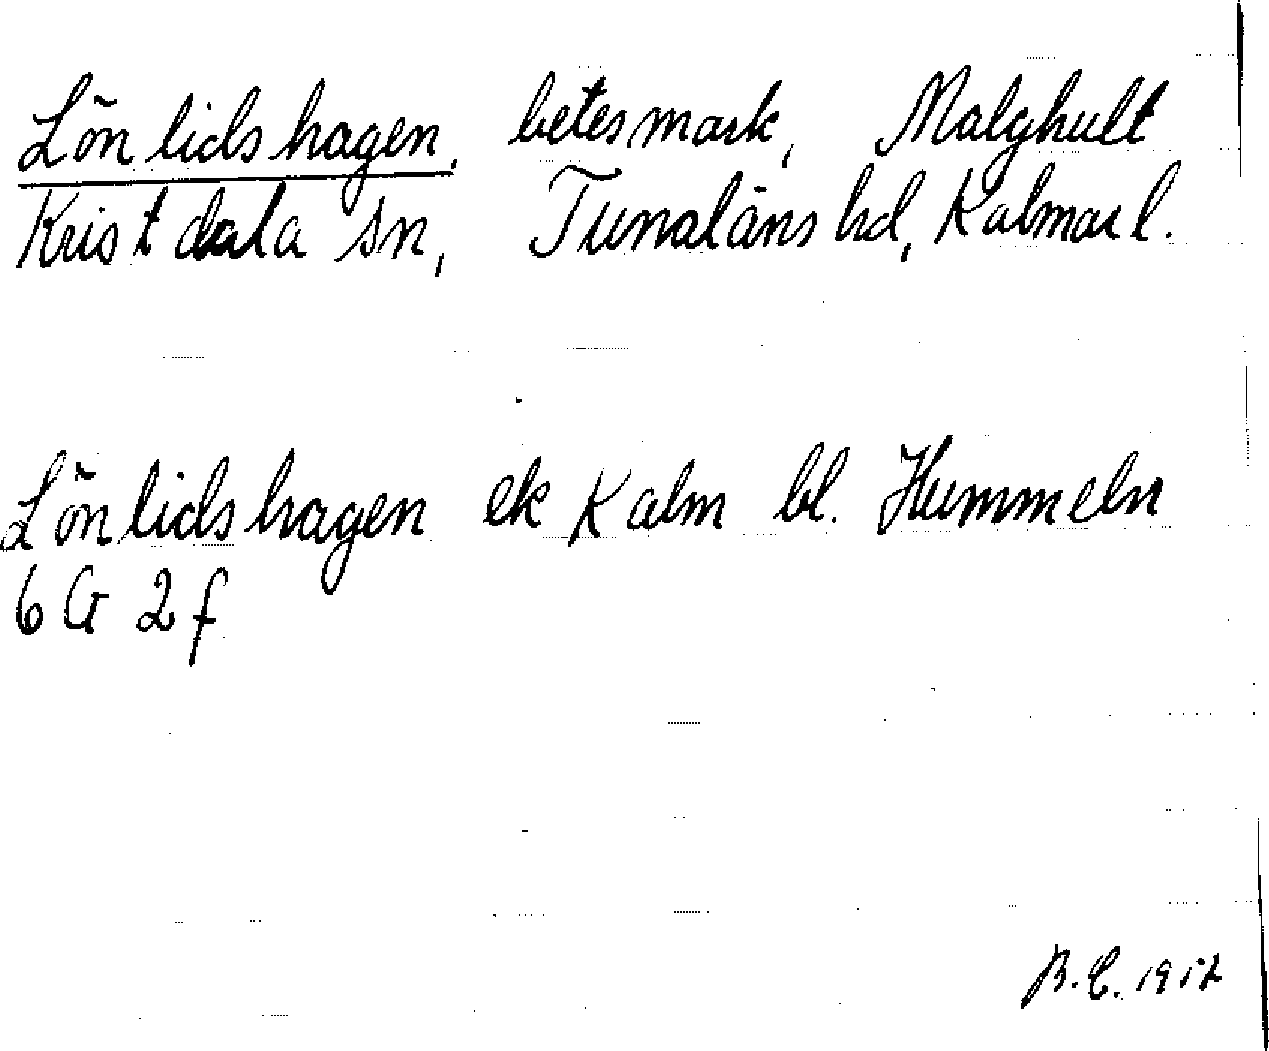 Lönlidshagen, betesmark, Malghult
Kristdala sn, Tunaläns hd, Kalmar l.
Lönlidshagen ek Kalm bl. Hummeln
6 G 2 f